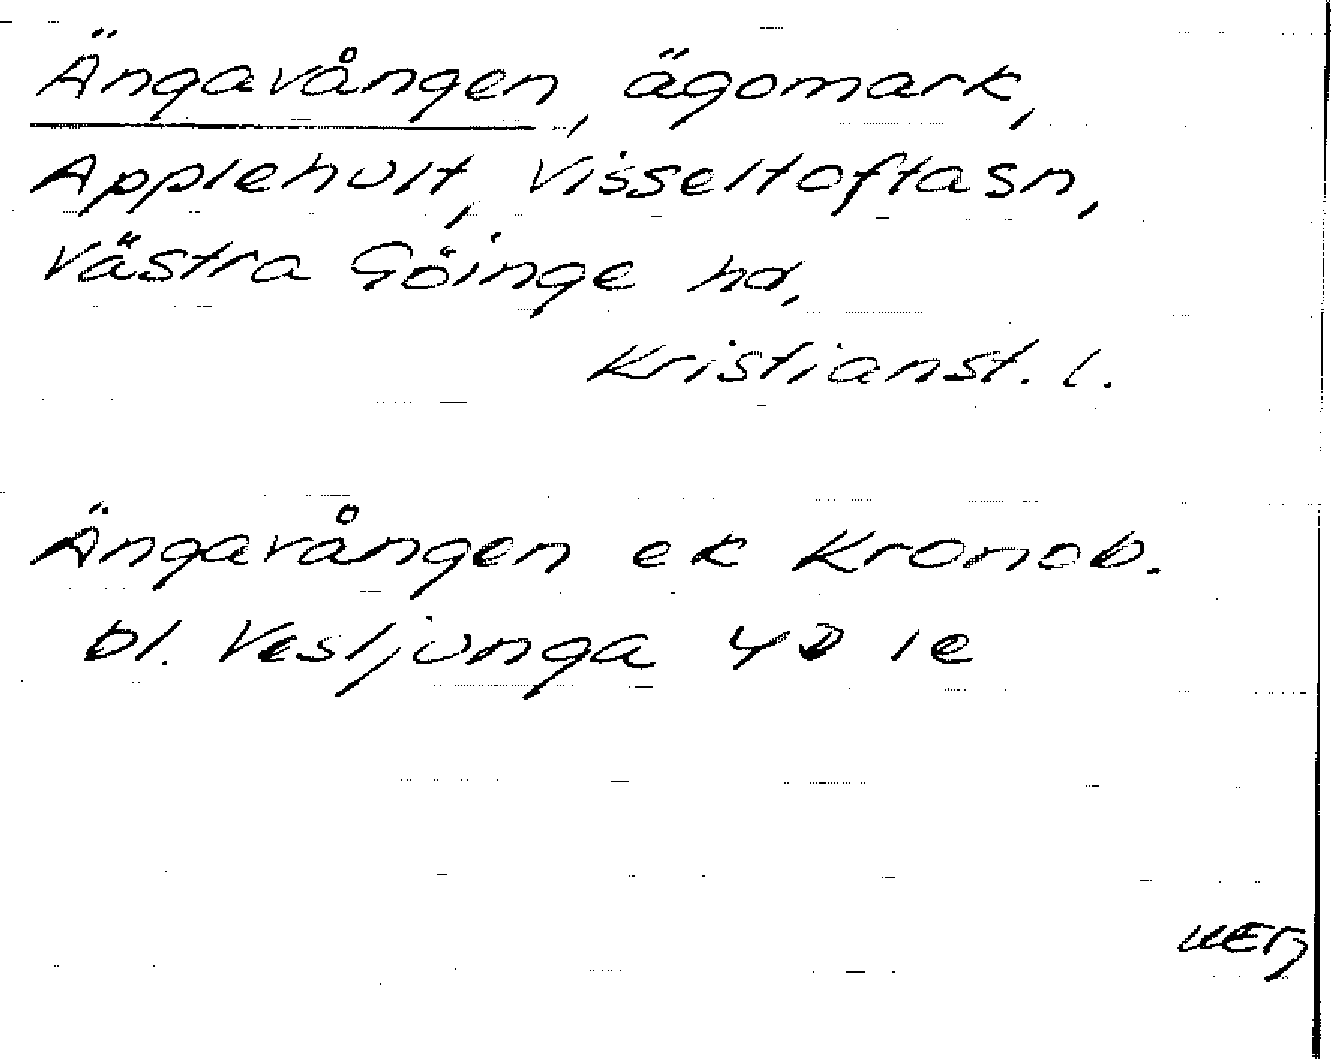 Ängavången, ägomark,
Applehult, Visseltoftasn,
Västra Göinge hd,
Kristianst. l.
Ängavången ek Kronob.
bl. Vesljunga 4D 1e